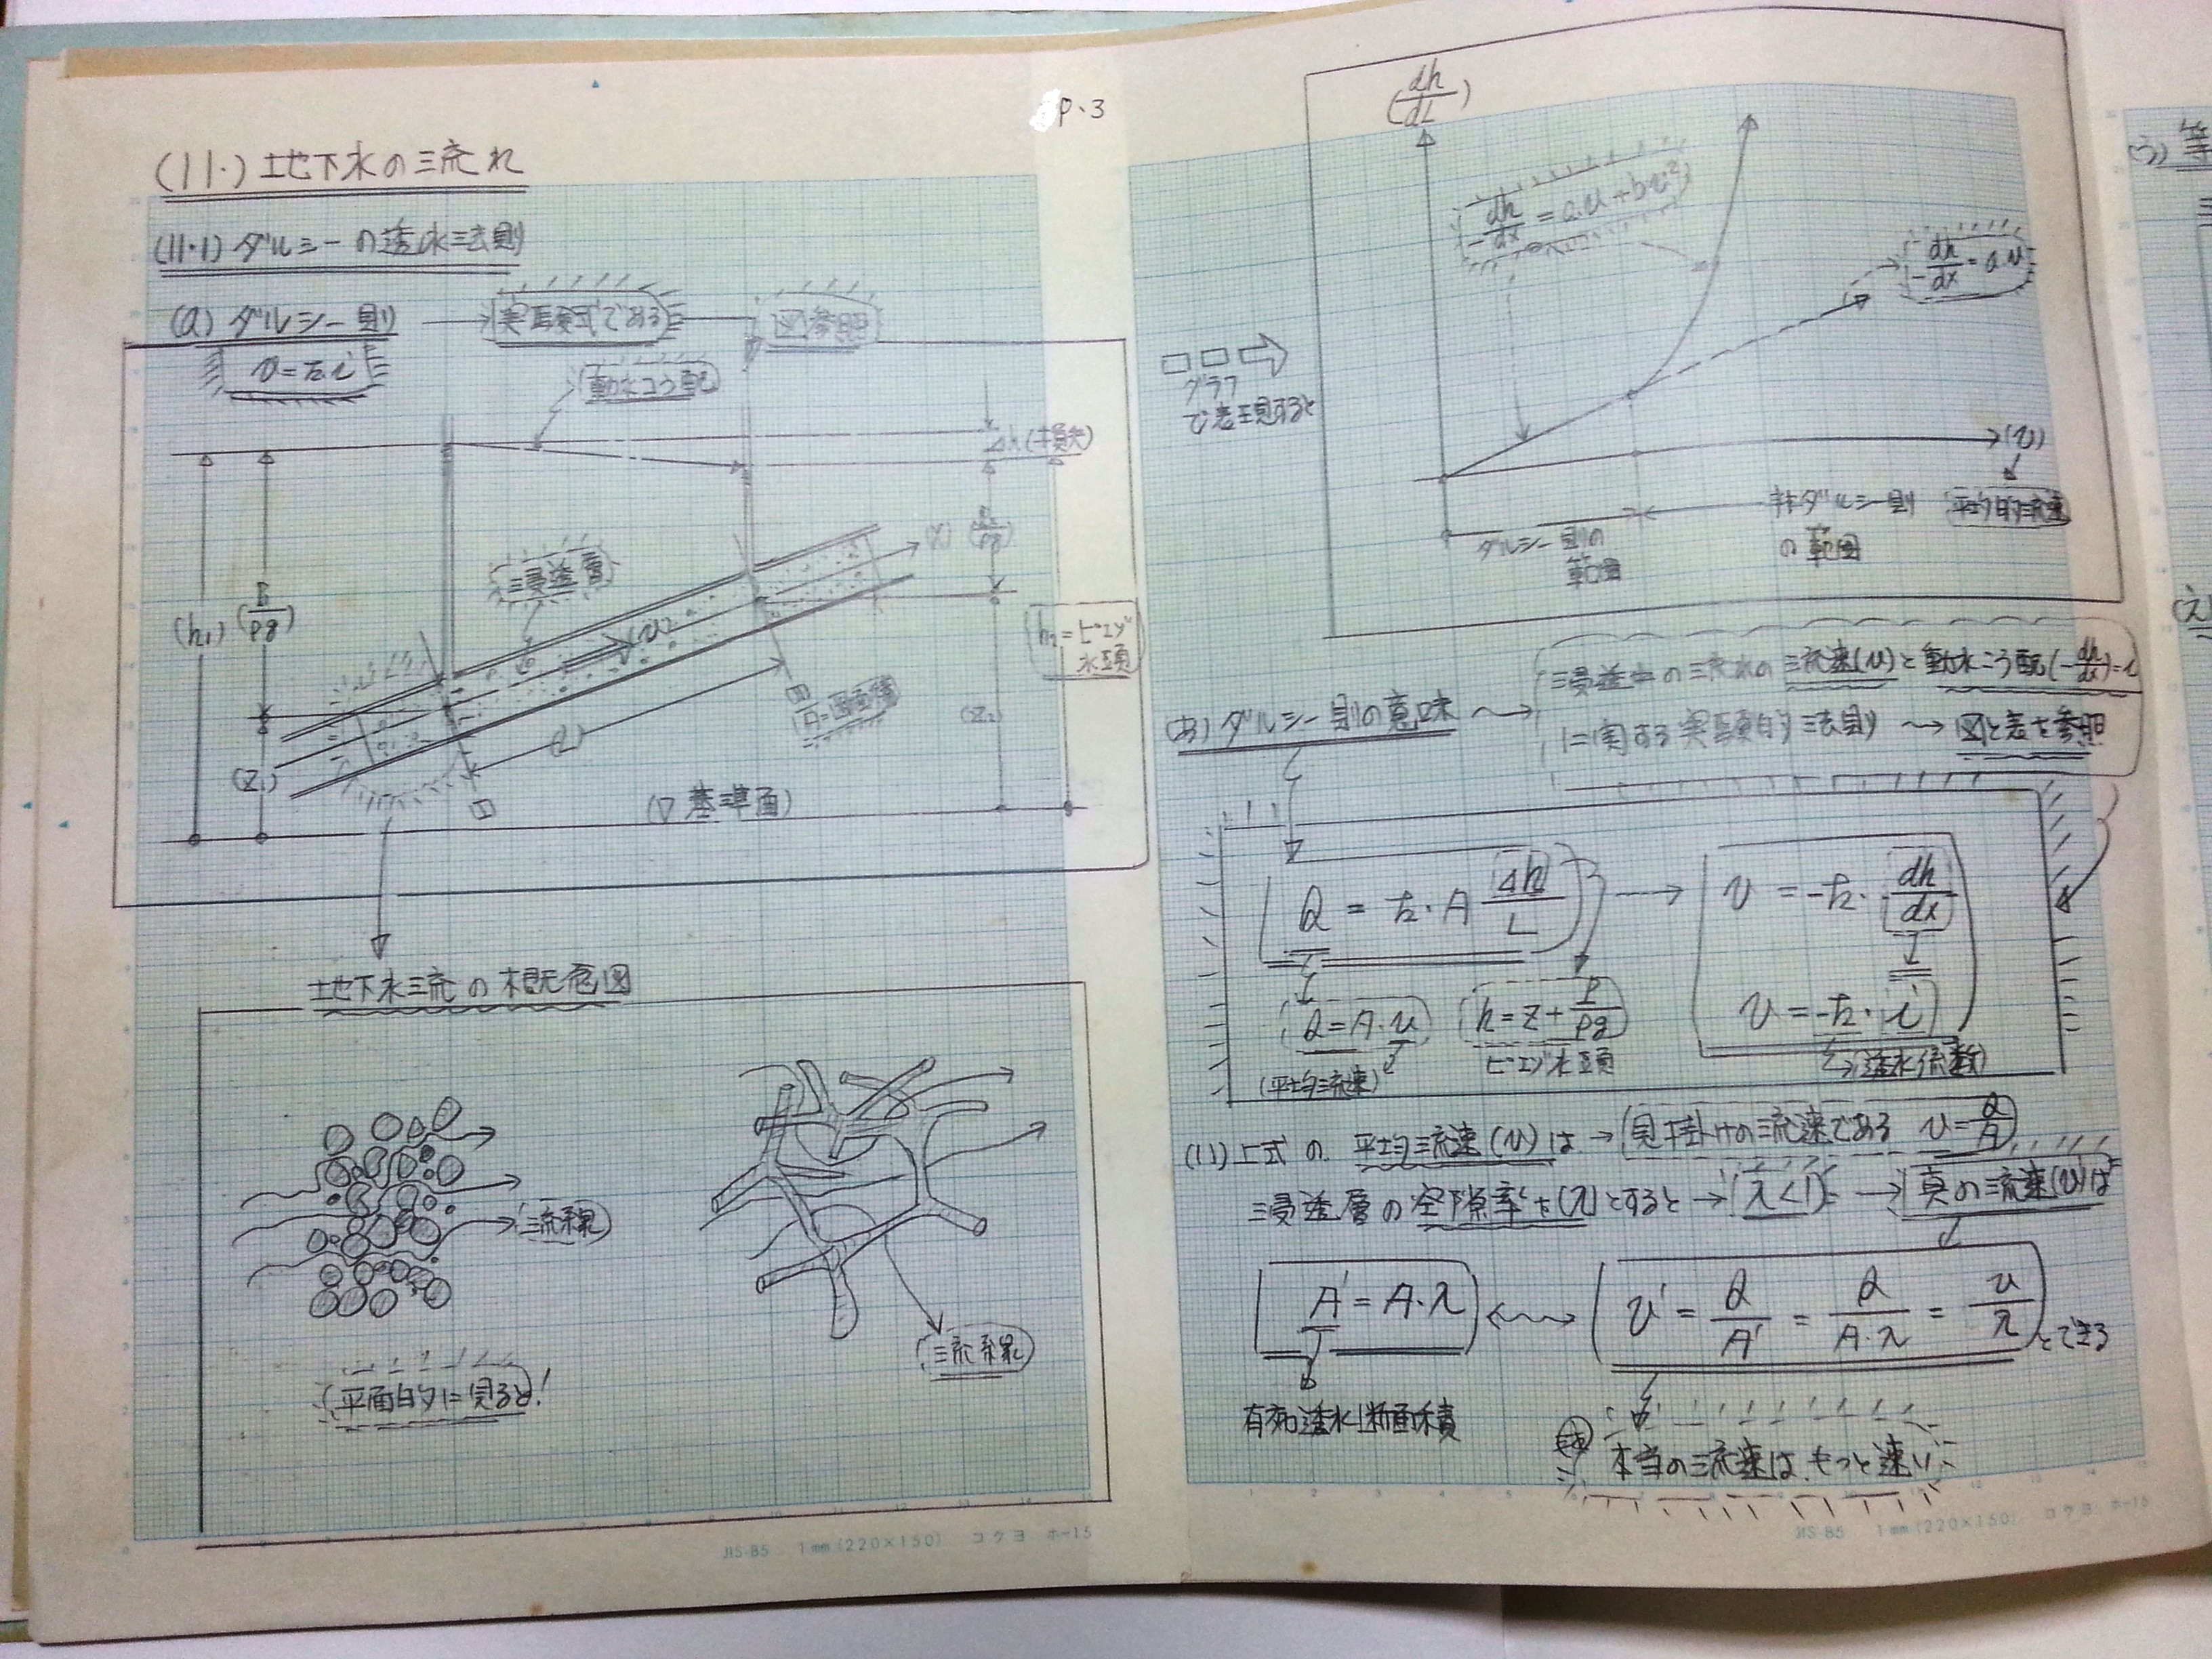 p.3
(11.) 地下水の流れ
(11.1) ダルシーの透水法則
(a) ダルシー則
実験式である
図参照
v=k.i
動水こう配
Δh(損失)
(h1)
(P1/ρg)
(z1)
浸透層
(v)
(x)
(P2/ρg)
h2=ピエゾ水頭
(L)
A=断面積
(z2)
I
II
(▽基準面)
地下水流の概念図
流線
流線
(平面的に見ると!
(dh/dL)
-dh/dx=a.v+bv²
-dh/dx=a.v
グラフ
で表現すると
(v)
平均的流速
ダルシー則の
範囲
非ダルシー則
の範囲
(あ) ダルシー則の意味
浸透中の流れの流速(v)と動水こう配(-dh/dx)=i
に関する実験的法則 図と表を参照
Q = k・A Δh/L
v = -k・dh/dx
Q=A.v
h=z+P/ρg
v = -k・i
(平均流速)
ピエゾ水頭
(透水係数)
(い) 上式の 平均流速(v)は→見掛けの流速である v=Q/A
浸透層の空隙率を(λ)とすると→(λ<1)→真の流速(v')は
A' = A・λ
v' = Q/A' = Q/A・λ = v/λ とできる
有効透水断面積
本当の流速は、もっと速い
JIS-B5 1mm(220×150) コクヨ ホ-15
JIS-B5 1mm(220×150) コクヨ ホ-15
(う) 等
(え)